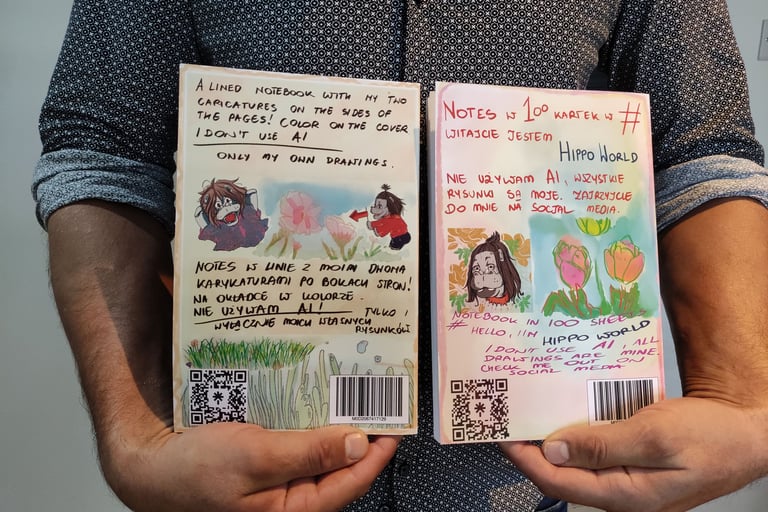 A LINED NOTEBOOK WITH MY TWO
CARICATURES ON THE SIDES OF
THE PAGES! COLOR ON THE COVER
I DON'T USE AI
ONLY MY OWN DRAWINGS.
NOTES W LINIE Z MOIM DWOMA
KARYKATURAMI PO BOKACH STRON!
NA OKŁADCE W KOLORZE.
NIE UZYWAM AI! TYLKO I
WYŁĄCZNIE MOICH WŁASNYCH
RYSUNKÓW
NOTES W 100 KARTEK W #
WITAJCIE JESTEM
HIPPO WORLD
NIE UZYWAM AI, WSZYSTKIE
RYSUNKI SĄ MOJE. ZAJRZYJCIE
DO MNIE NA SOCJAL MEDIA.
NOTEBOOK IN 100 SHEETS
# HELLO, I'M HIPPO WORLD
I DON'T USE AI, ALL
DRAWINGS ARE MINE.
CHECK ME OUT ON
SOCIAL MEDIA